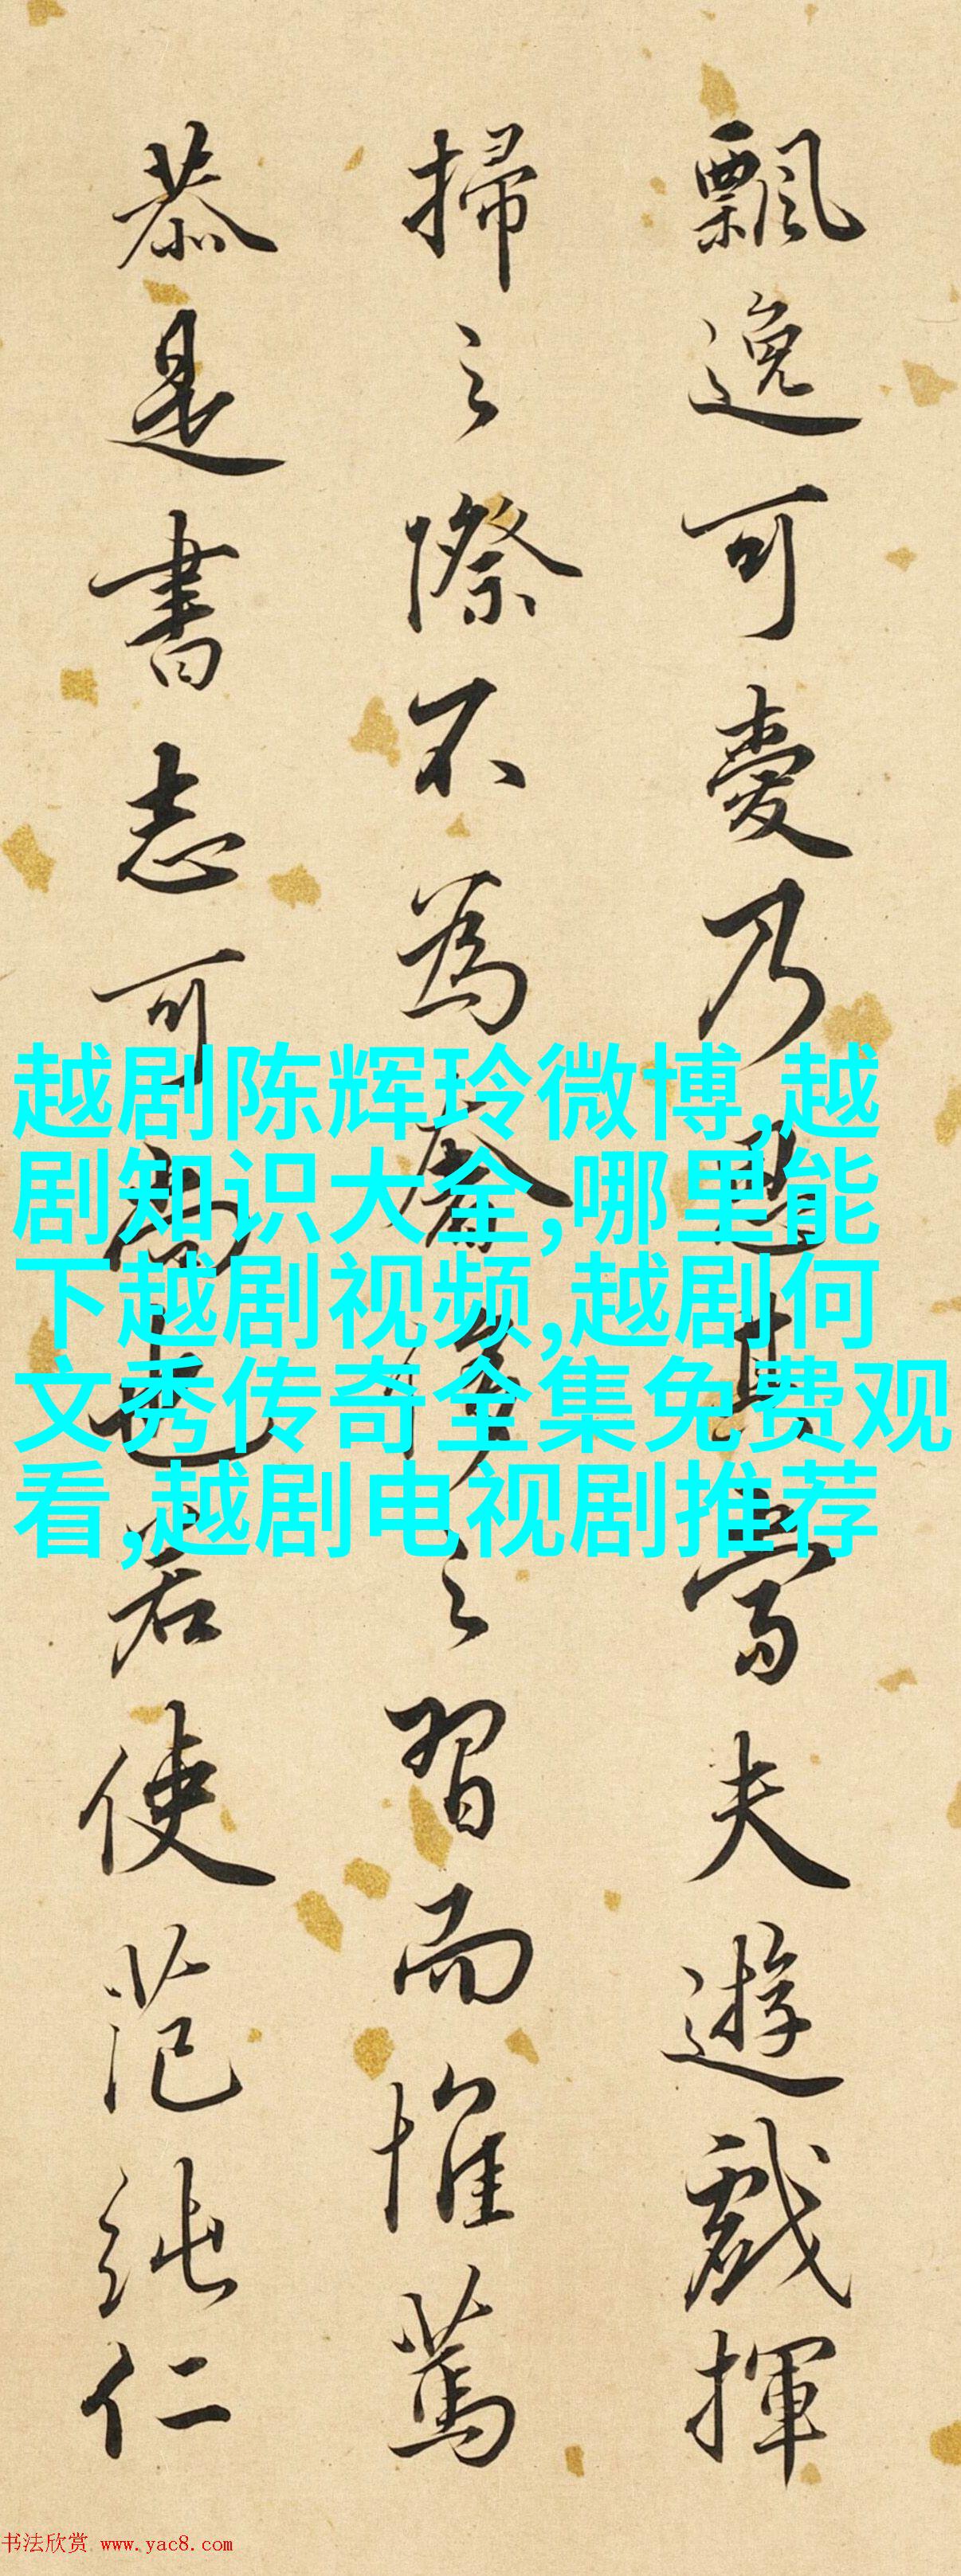 飄逸可愛乃其寓夫遊戲揮
掃之際不為奢侈之習而惟篤
恭是書志可尚也若使范純仁
越剧陈辉玲微博,越
剧知识大全,哪里能
下越剧视频,越剧何
文秀传奇全集免费观
看,越剧电视剧推荐
书法欣赏 www.yac8.com